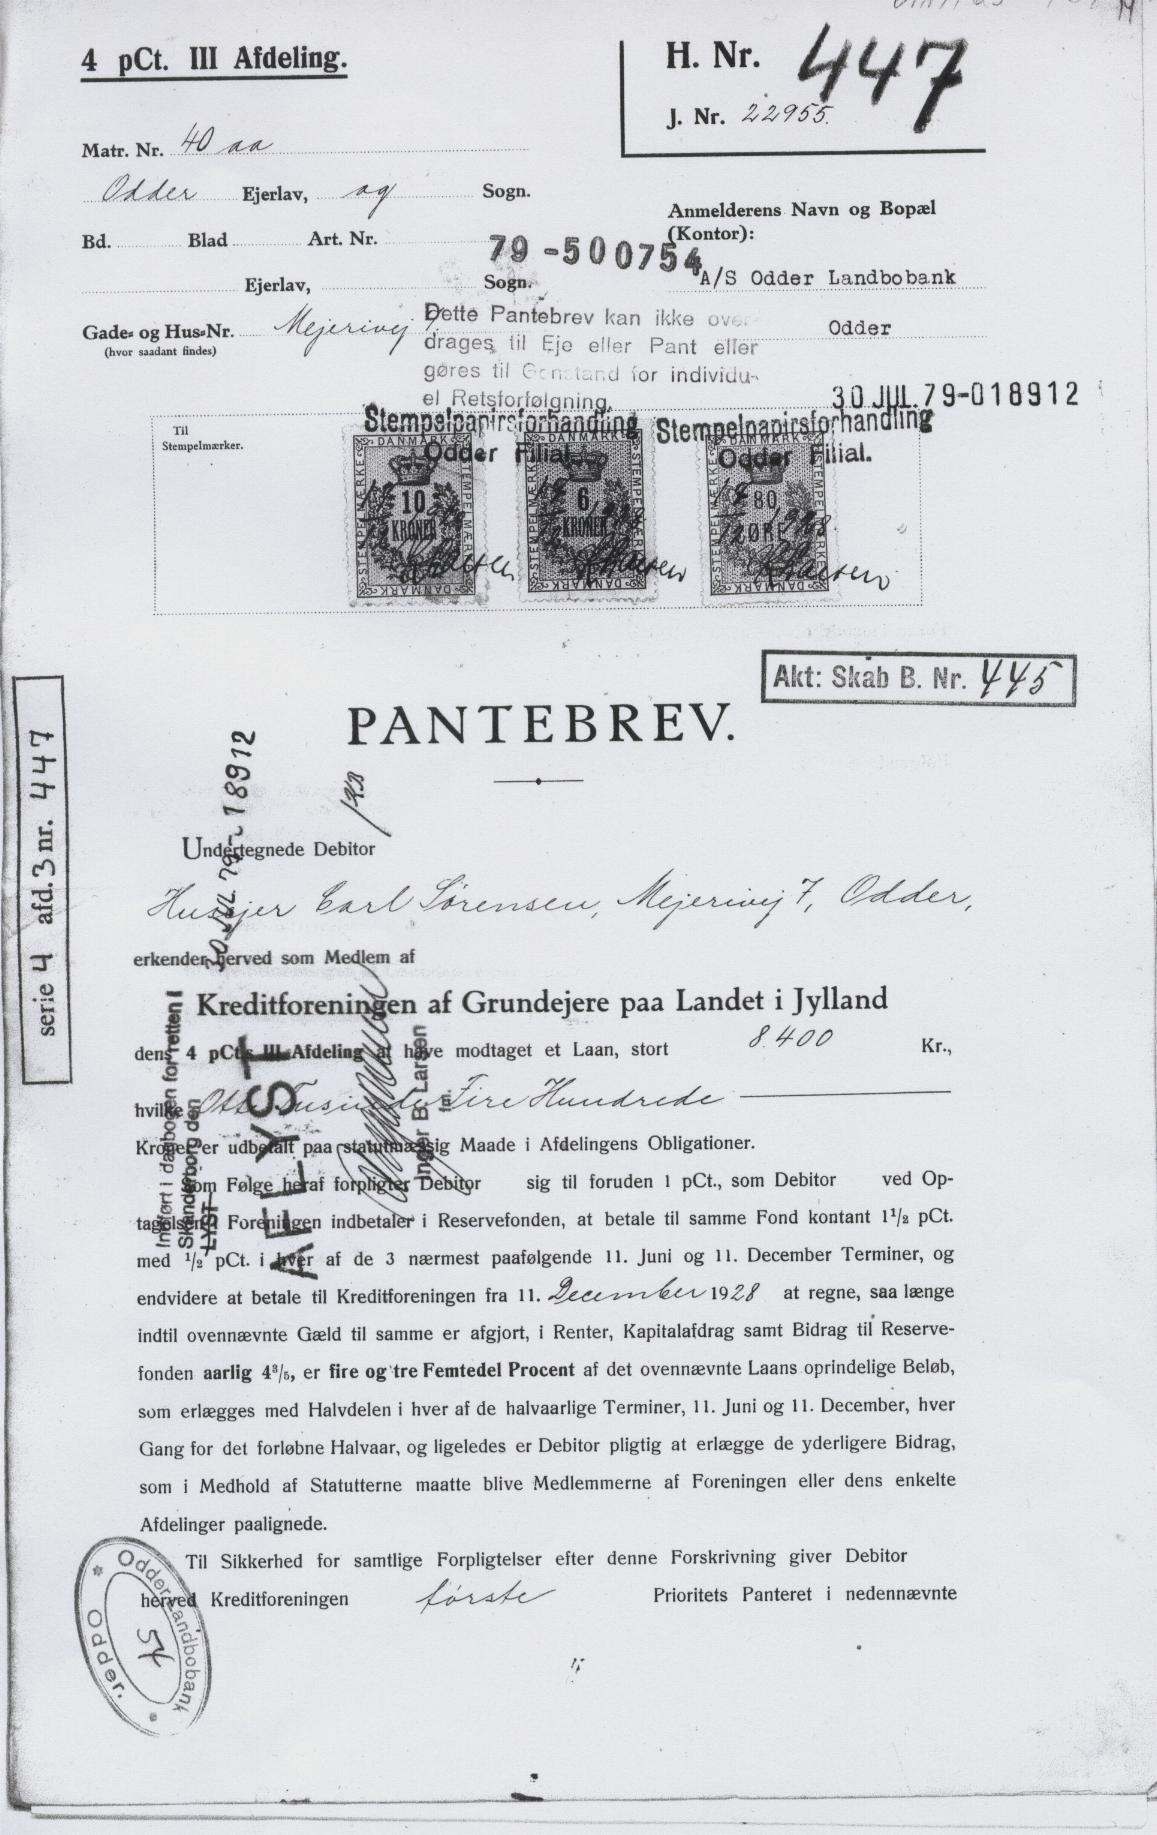 4 pCt. III Afdeling.
H. Nr. 447
J. Nr. 22955.
Matr. Nr. 40 aa
Odder Ejerlav, og Sogn.
Bd. Blad Art. Nr.
Ejerlav, Sogn.
Gade- og Hus-Nr. Mejerivej 7.
(hvor saadant findes)
Anmelderens Navn og Bopæl
(Kontor):
79-500754
A/S Odder Landbobank
Odder
Dette Pantebrev kan ikke over-
drages til Eje eller Pant eller
gøres til Genstand for individu-
el Retsforfølgning.
30 JUL. 79-018912
Til
Stempelmærker.
Stempelpapirsforhandling
Odder Filial.
Stempelpapirsforhandling
Odder Filial.
DANMARK
STEMPELMÆRKE
10
KRONER
STEMPELMÆRKE
DANMARK
DANMARK
STEMPELMÆRKE
6
KRONER
STEMPELMÆRKE
DANMARK
DANMARK
STEMPELMÆRKE
80
ØRE
STEMPELMÆRKE
DANMARK
Akt: Skab B. Nr. 445
serie 4 afd. 3 nr. 447
PANTEBREV.
30 JUL. 79-18912
Undertegnede Debitor
Husejer Carl Sørensen, Mejerivej 7, Odder,
erkender herved som Medlem af
Kreditforeningen af Grundejere paa Landet i Jylland
dens 4 pCt.s III Afdeling at have modtaget et Laan, stort 8.400 Kr.,
hvilke Otte Tusinde Fire Hundrede
Kroner er udbetalt paa statutmæssig Maade i Afdelingens Obligationer.
Som Følge heraf forpligter Debitor sig til foruden 1 pCt., som Debitor ved Op-
tagelsen i Foreningen indbetaler i Reservefonden, at betale til samme Fond kontant 1 1/2 pCt.
med 1/2 pCt. i hver af de 3 nærmest paafølgende 11. Juni og 11. December Terminer, og
endvidere at betale til Kreditforeningen fra 11. December 1928 at regne, saa længe
indtil ovennævnte Gæld til samme er afgjort, i Renter, Kapitalafdrag samt Bidrag til Reserve-
fonden aarlig 4 3/5, er fire og tre Femtedel Procent af det ovennævnte Laans oprindelige Beløb,
som erlægges med Halvdelen i hver af de halvaarlige Terminer, 11. Juni og 11. December, hver
Gang for det forløbne Halvaar, og ligeledes er Debitor pligtig at erlægge de yderligere Bidrag,
som i Medhold af Statutterne maatte blive Medlemmerne af Foreningen eller dens enkelte
Afdelinger paalignede.
Til Sikkerhed for samtlige Forpligtelser efter denne Forskrivning giver Debitor
herved Kreditforeningen første Prioritets Panteret i nedennævnte
Indført i dagbogen for retten i
Skanderborg den
LYST
AFLYST
Inger B. Larsen
fm.
Odder Landbobank
54
Odder.